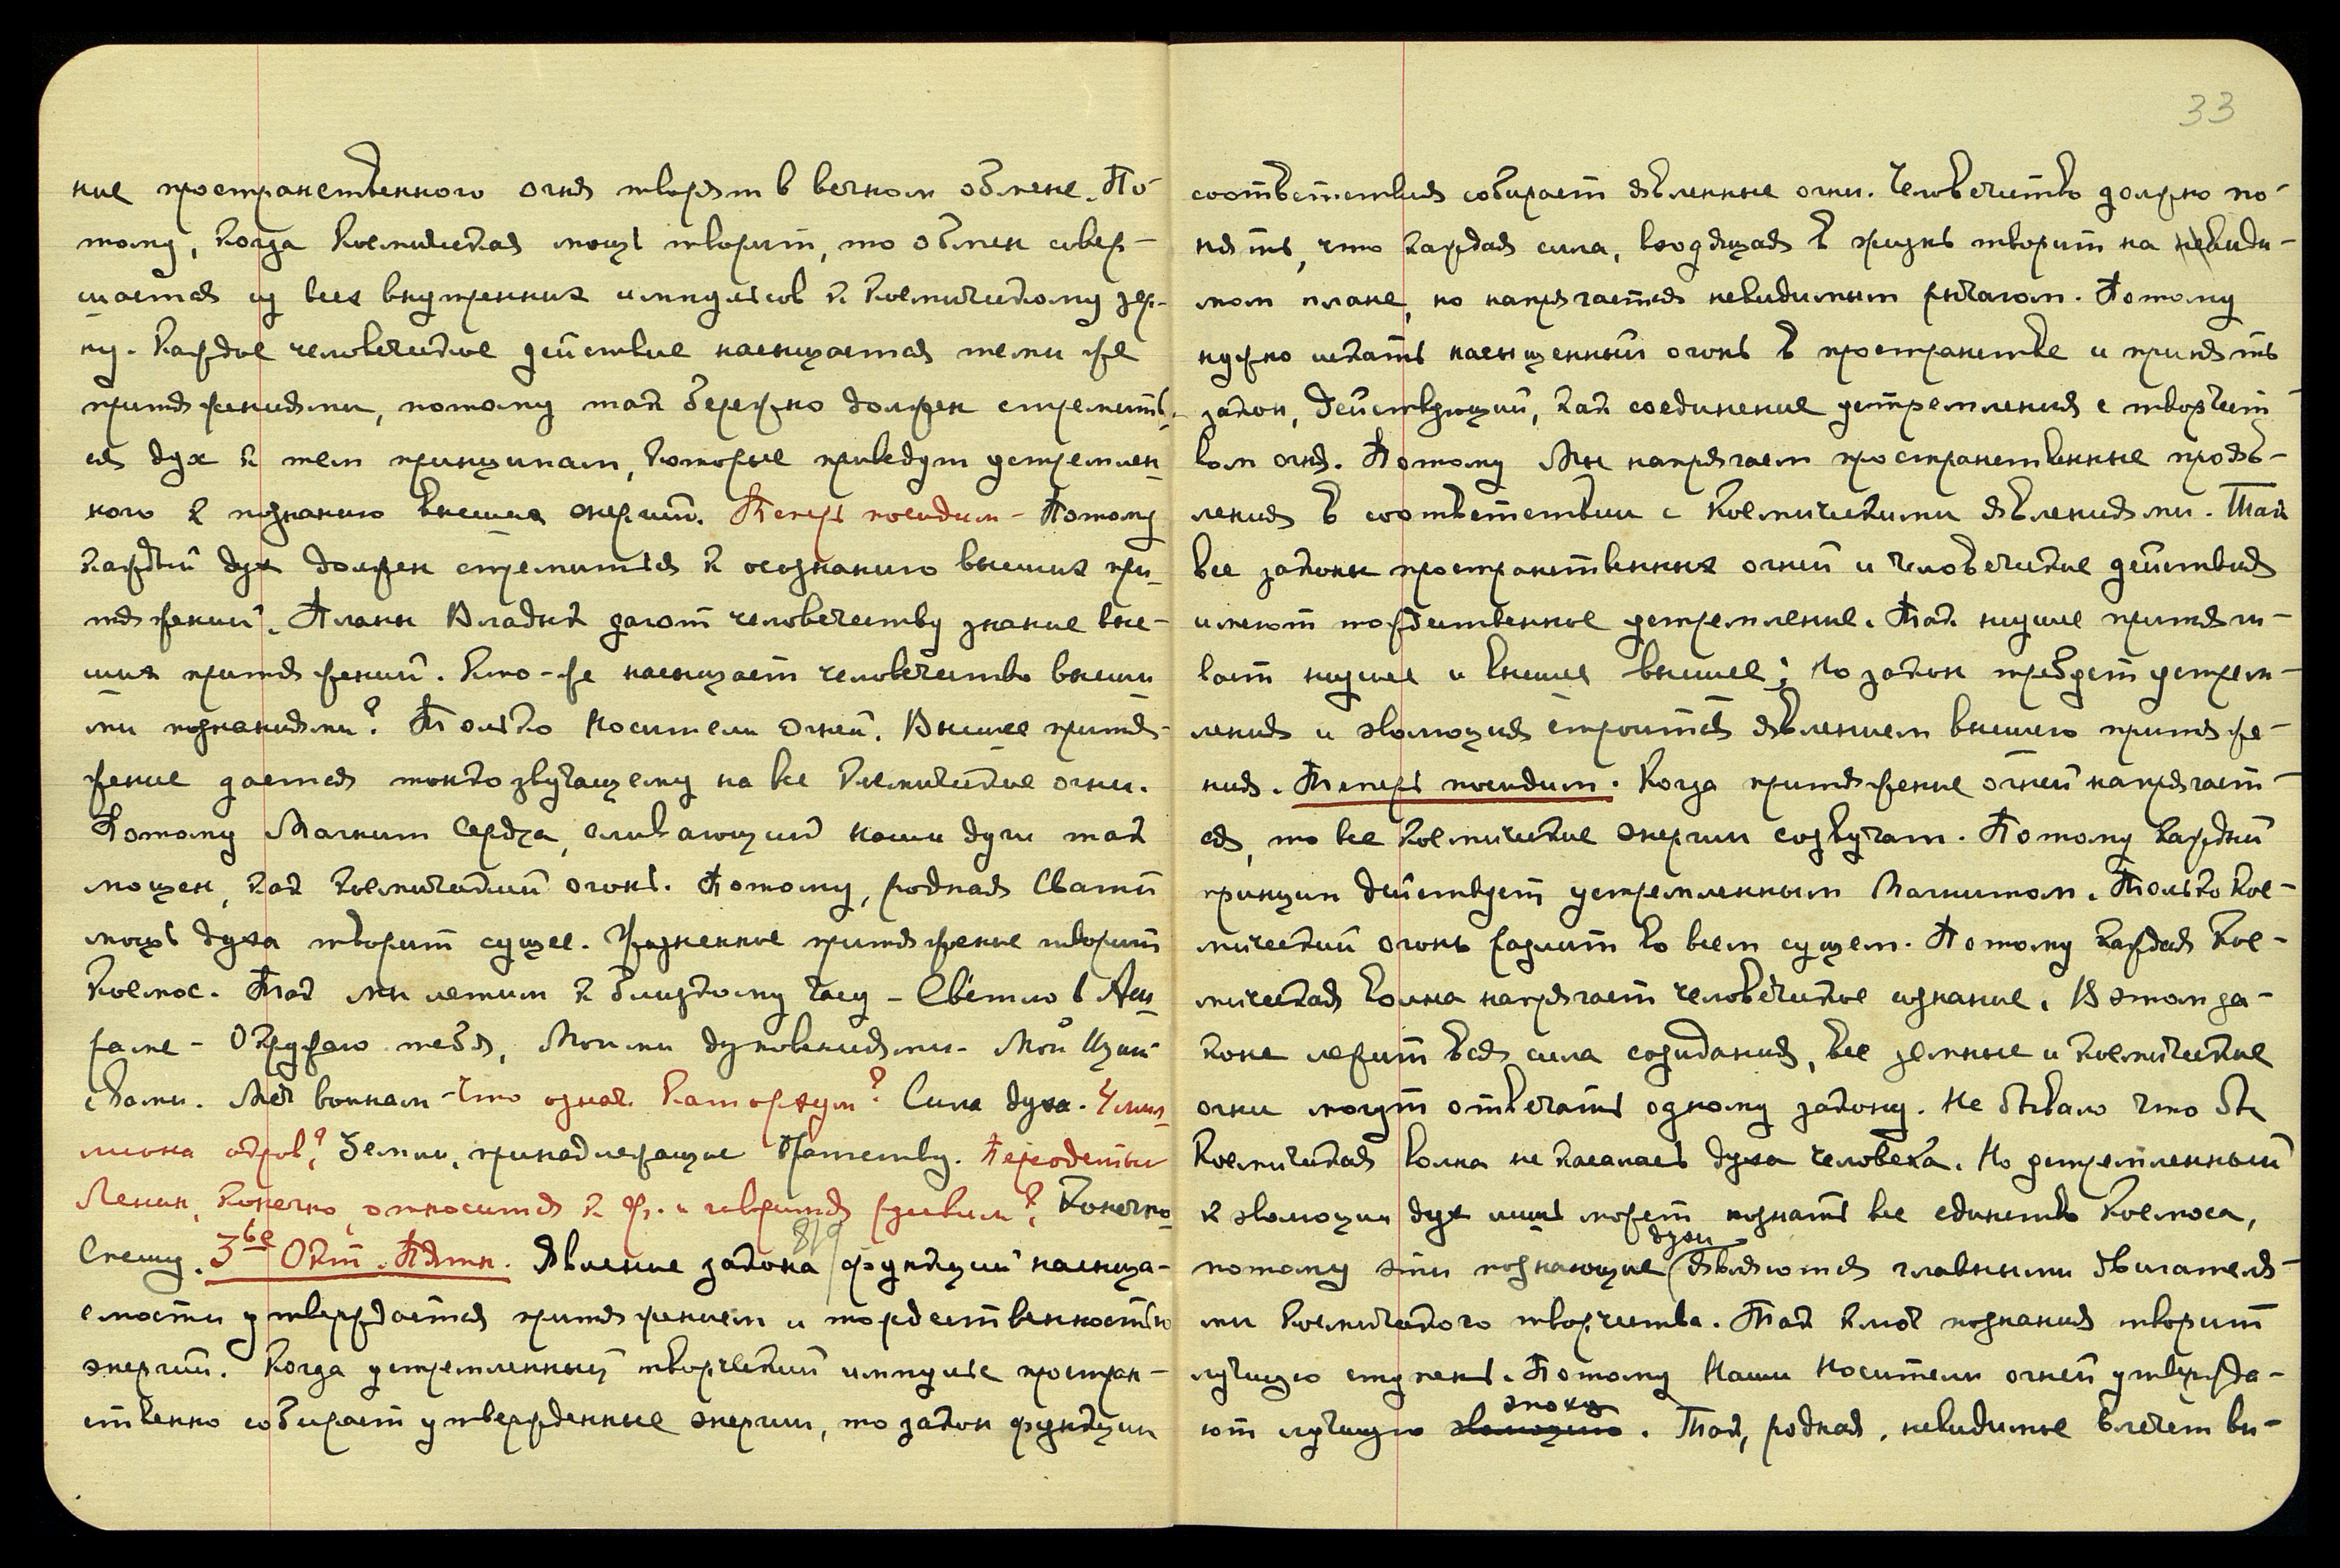 ние пространственного огня творят в вечном обмене. По-
тому, когда космическая мощь творит, то обмен совер-
шается из всех внутренних импульсов к космическому зер-
ну. Каждое человеческое действие насыщается теми же
притяжениями, потому так бережно должен стремить-
ся дух к тем принципам, которые приведут устремлен-
ного к познанию высших энергий. Теперь посидим – Потому
каждый дух должен стремиться к осознанию высших при-
тяжений. Планы Владык дают человечеству знание выс-
ших притяжений. Кто-же насыщает человечество высши-
ми познаниями? Только Носители Огней. Высшее притя-
жение дается тонко звучащему на все космические огни.
Потому Магнит Сердца, сливающий наши души так
мощен, как космический огонь. Потому, родная Свати
мощь духа творит сущее. Жизненное притяжение творит
Космос. Так мы летим к близкому часу – Светло в Аш-
раме – Окружаю тебя, Моими дуновениями – Мой Щит
с вами. Меч воинам – Что означ. ? Сила духа.
? Земли, принадлежащие Братству.
Ленин, конечно, относится к ? Конечно
Спешу. 3ье Окт. Пятн. Явление закона функций насыща-
819
емости утверждается притяжением и тождественностью
энергий. Когда устремленный творческий импульс простран-
ственно собирает утвержденные энергии, то закон функции
33
соответствия собирает явленные огни. Человечество должно по-
нять, что каждая сила, входящая в жизнь творит на види-
мом плане, но напрягается невидимым рычагом. Потому
нужно искать насыщенный огонь в пространстве и принять
закон, действующий, как соединение устремления с творчест-
вом огня. Потому Мы напрягаем пространственные прояв-
ления в соответствии с космическими явлениями. Так
все законы пространственных огней и человеческие действия
имеют тождественное устремление. Так низшее притяги-
вает низшее и высшее высшее; но закон требует устрем-
ления и эволюция строится явлением высшего притяже-
ния. Теперь посидим. Когда притяжение огней напрягает-
ся, то все космические энергии созвучат. Потому каждый
принцип действует устремленным Магнитом. Только кос-
мический огонь разлит во всем сущем. Потому каждая кос-
мическая волна напрягает человеческое сознание. В этом за-
коне лежит вся сила созидания, все земные и космические
огни могут отвечать одному закону. Не бывало что бы
космическая волна не касалась духа человека. Но устремленный
к эволюции дух лишь может познать все единство Космоса,
потому эти познающие духи являются главными двигателя-
ми космического творчества. Так ключ познания творит
лучшую ступень. Потому Наши Носители огней утвержда-
ют лучшую эволюцию эпоху. Так, родная, невидимые влечет ви-